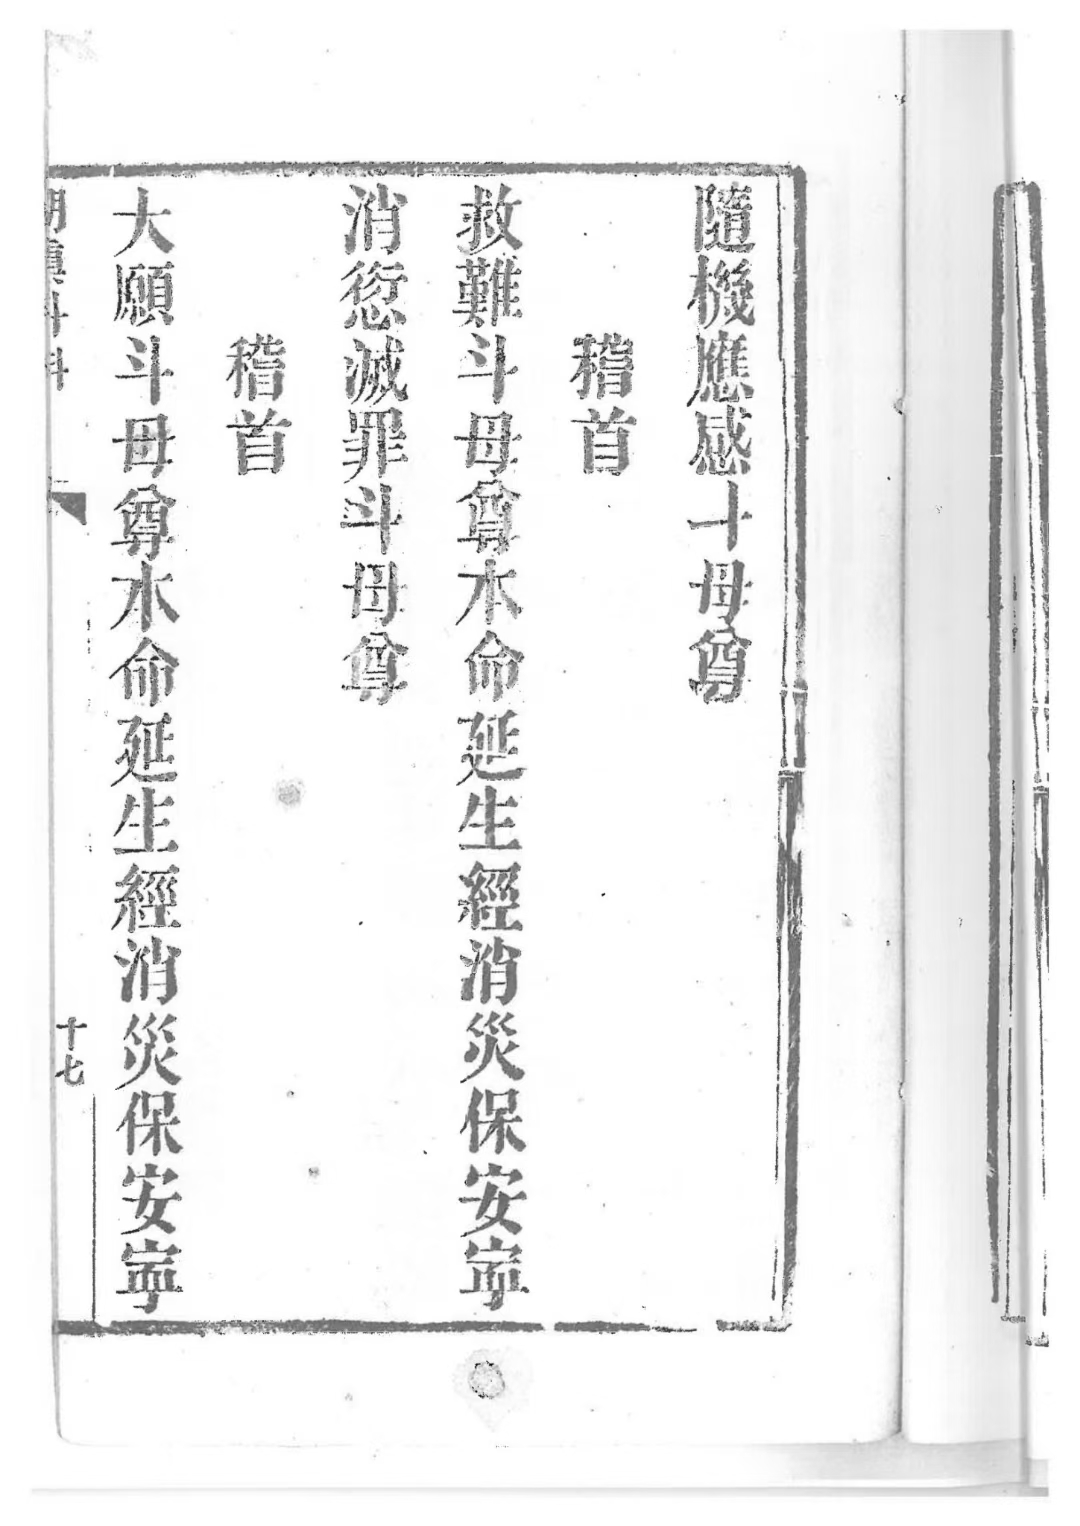 隨機應感十母尊
稽首
救難斗母尊本命延生經消災保安寧
消愆滅罪斗母尊
稽首
大願斗母尊本命延生經消災保安寧
十七